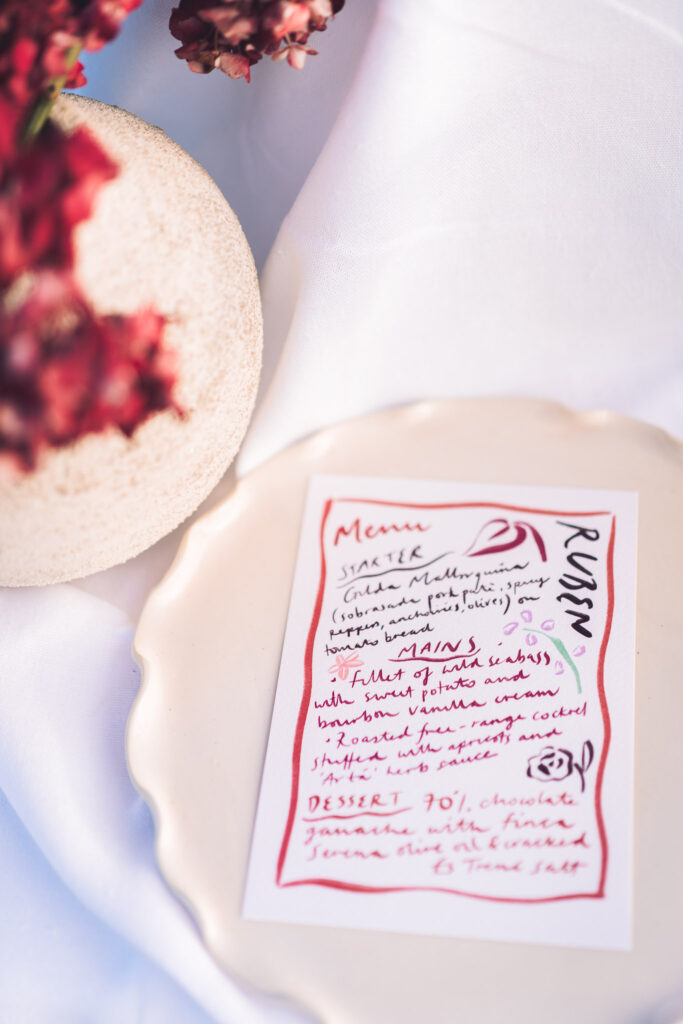 Menu
RUBEN
STARTER
Gilda Mallorquina
(sobrasada pork paté, spicy
peppers, anchovies, olives) on
tomato bread
MAINS
• fillet of wild seabass
with sweet potato and
bourbon vanilla cream
• Roasted free-range cockrel
stuffed with apricots and
'Artá' herb sauce
DESSERT 70% chocolate
ganache with finca
Serena olive oil & cracked
Es Trenc salt